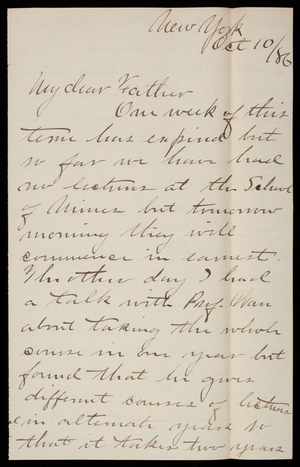 New York
Oct 10/86
My dear Father
One week of this
term has expired but
so far we have had
no lectures at the School
of Mines but tomorrow
morning they will
commence in earnest.
The other day I had
a talk with Prof. Van
about taking the whole
course in one year but
found that he gives
different courses of lectures
in alternate years so
that it takes two years